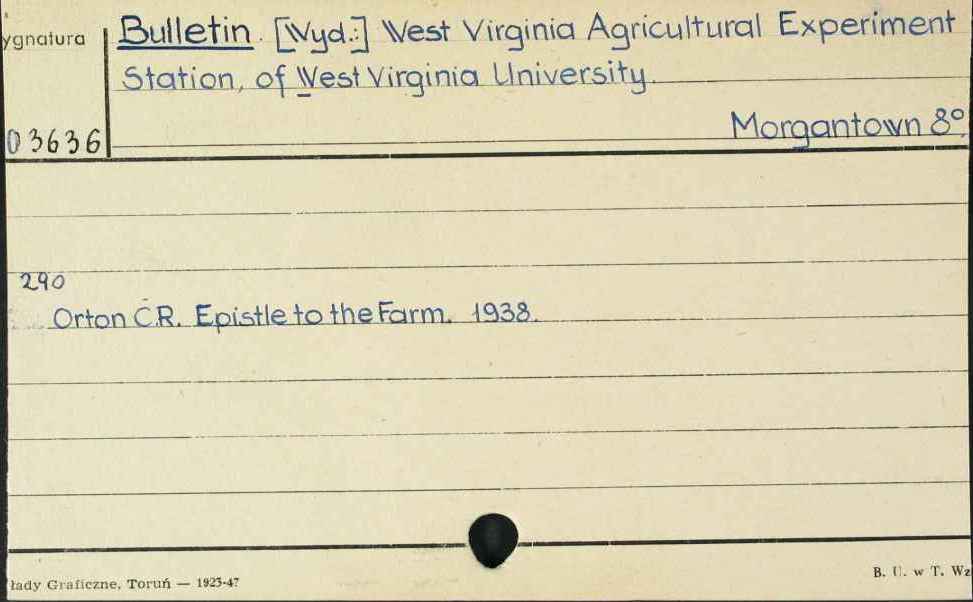 ygnatura
Bulletin. [Wyd.:] West Virginia Agricultural Experiment
Station, of West Virginia University.
03636
Morgantown 8°.
290
Orton C.R. Epistle to the Farm. 1938.
łady Graficzne, Toruń — 1923-47
B. U. w T. Wz